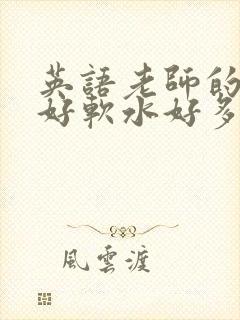 英語老師的
好軟水好多
風雲渡